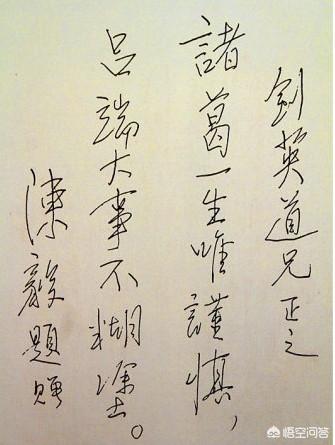 剑英道兄正之
諸葛一生唯謹慎，
吕端大事不糊涂。
陳毅題贈
悟空问答